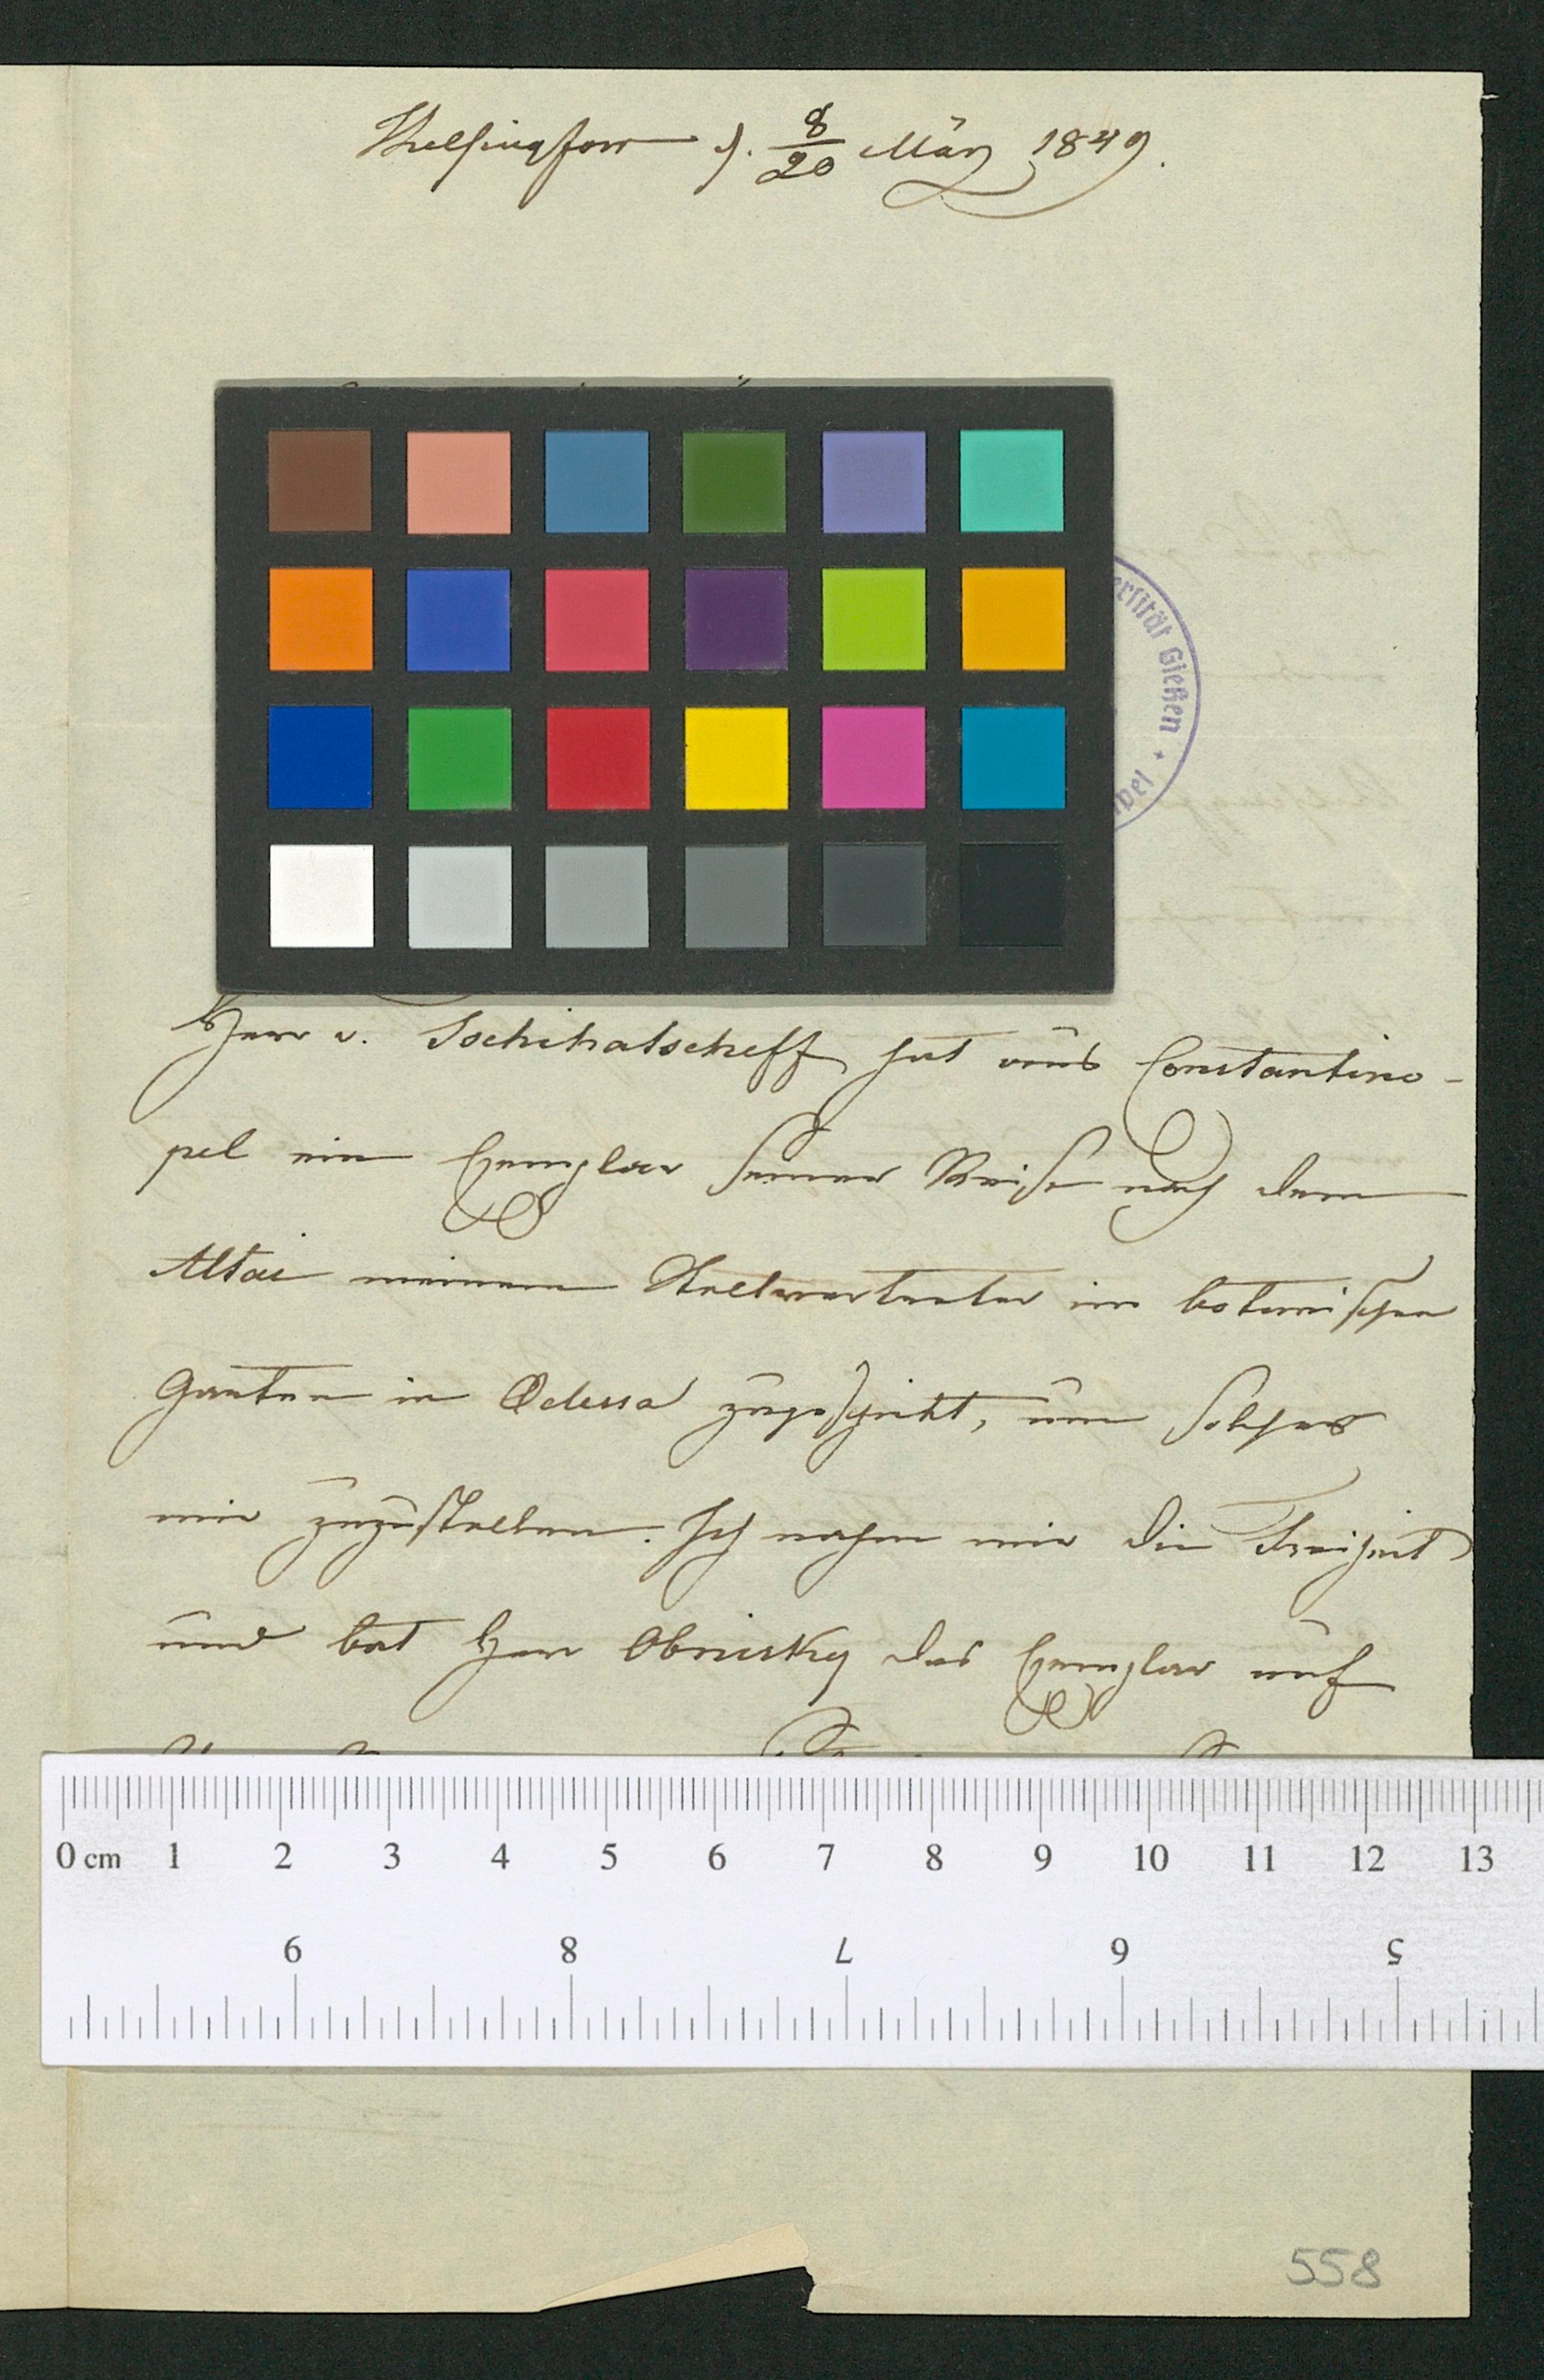 Helsingfors d. 8/20 März 1849.
ersität Gießen
Herr v. Tschihatscheff hat aus Constantino-
pel ein Exemplar seiner Reise nach dem
Altai meinem Stellvertreter im botanischen
Garten in Odessa zugeschickt, um solches
mir zuzustellen. Ich nahm mir die Freiheit
und bat Herr das Exemplar auf
0 cm 1 2 3 4 5 6 7 8 9 10 11 12 13
9 8 7 6 5
558